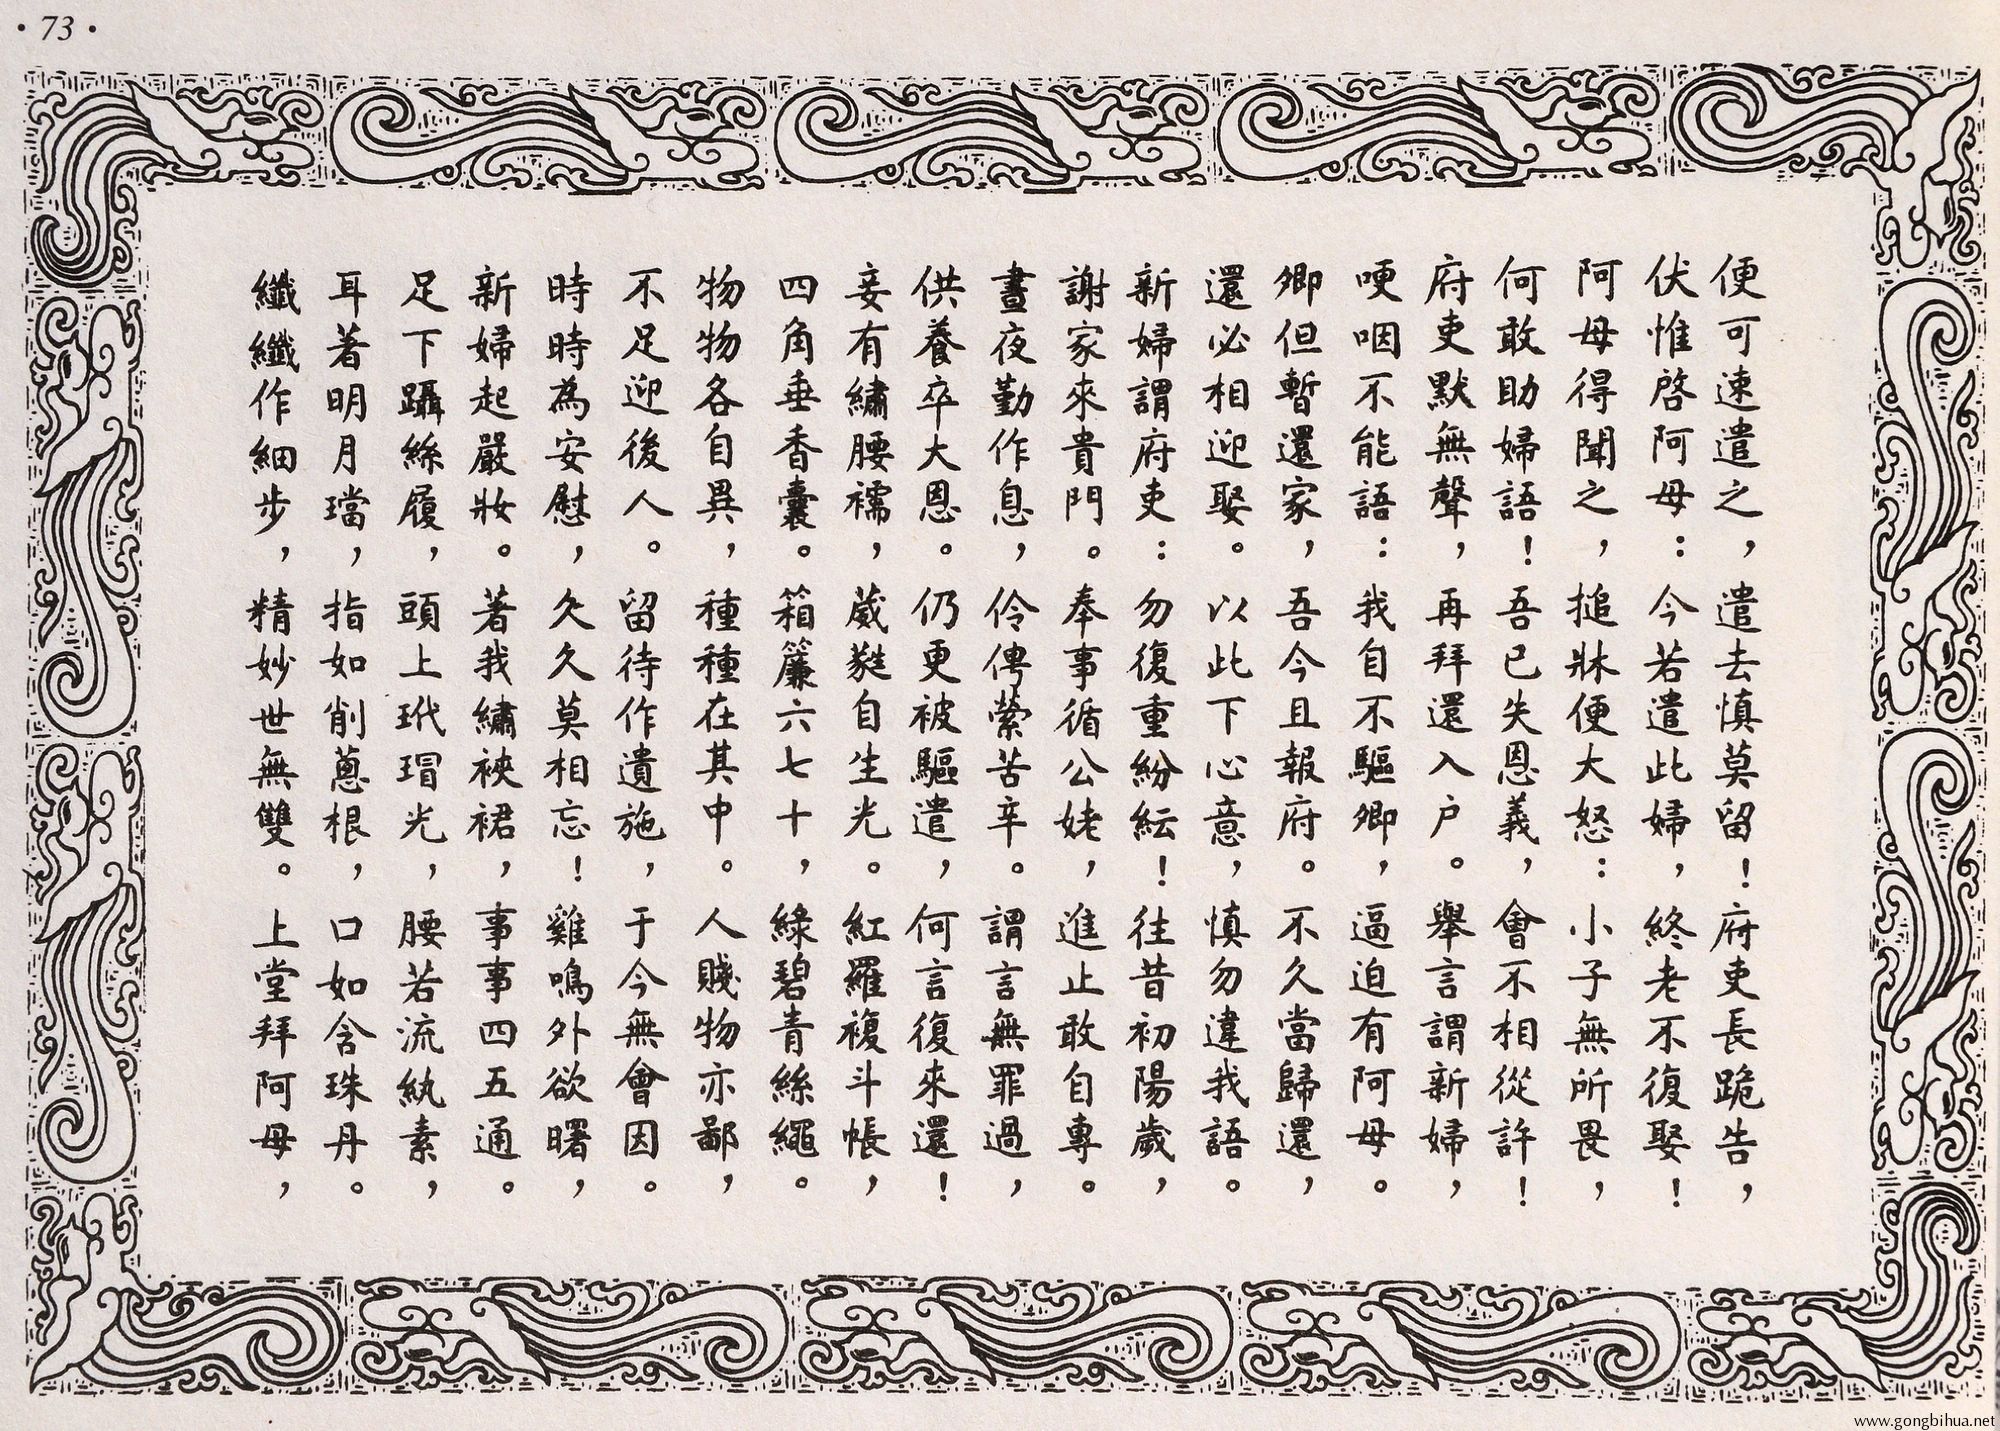 ·73·
便可速遣之，遣去慎莫留！府吏長跪告，
伏惟啓阿母：今若遣此婦，終老不復娶！
阿母得聞之，搥牀便大怒：小子無所畏，
何敢助婦語！吾已失恩義，會不相從許！
府吏默無聲，再拜還入户。舉言謂新婦，
哽咽不能語：我自不驅卿，逼迫有阿母。
卿但暫還家，吾今且報府。不久當歸還，
還必相迎娶。以此下心意，慎勿違我語。
新婦謂府吏：勿復重紛紜！往昔初陽歲，
謝家來貴門。奉事循公姥，進止敢自專。
晝夜勤作息，伶俜縈苦辛。謂言無罪過，
供養卒大恩。仍更被驅遣，何言復來還！
妾有繡腰襦，葳蕤自生光。紅羅複斗帳，
四角垂香囊。箱簾六七十，綠碧青絲繩。
物物各自異，種種在其中。人賤物亦鄙，
不足迎後人。留待作遺施，于今無會因。
時時為安慰，久久莫相忘！雞鳴外欲曙，
新婦起嚴妝。著我繡裌裙，事事四五通。
足下躡絲履，頭上玳瑁光，腰若流紈素，
耳著明月璫，指如削蔥根，口如含珠丹。
纖纖作細步，精妙世無雙。上堂拜阿母，
www.gongbihua.net